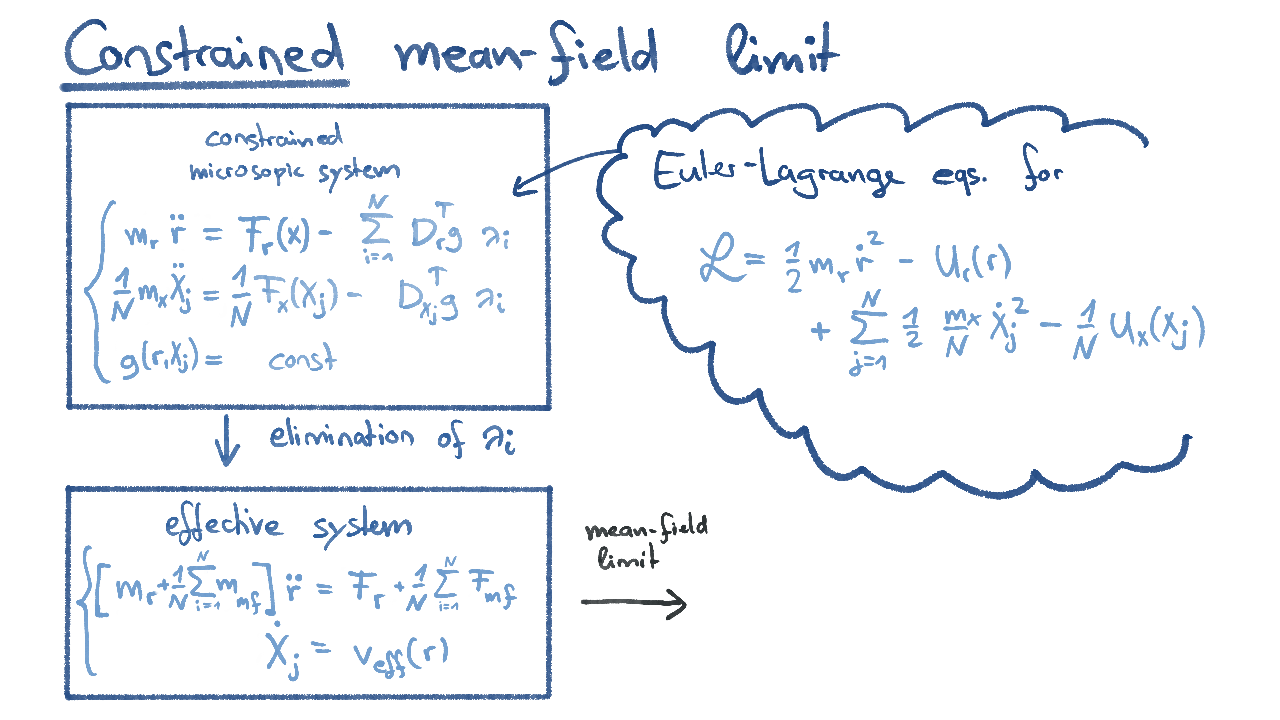 Constrained mean-field limit
constrained
microsopic system
m_r r̈ = F_r(x) - ∑_{i=1}^N D_r^T g λ_i
1/N m_x Ẍ_j = 1/N F_x(X_j) - D_{X_j}^T g λ_i
g(r, X_j) = const
Euler-Lagrange eqs. for
ℒ = 1/2 m_r ṙ² - U_r(r)
+ ∑_{j=1}^N 1/2 m_x/N Ẋ_j² - 1/N U_x(X_j)
elimination of λ_i
effective system
[m_r + 1/N ∑_{i=1}^N m_{mf}] r̈ = F_r + 1/N ∑_{i=1}^N F_{mf}
Ẋ_j = v_{eff}(r)
mean-field
limit